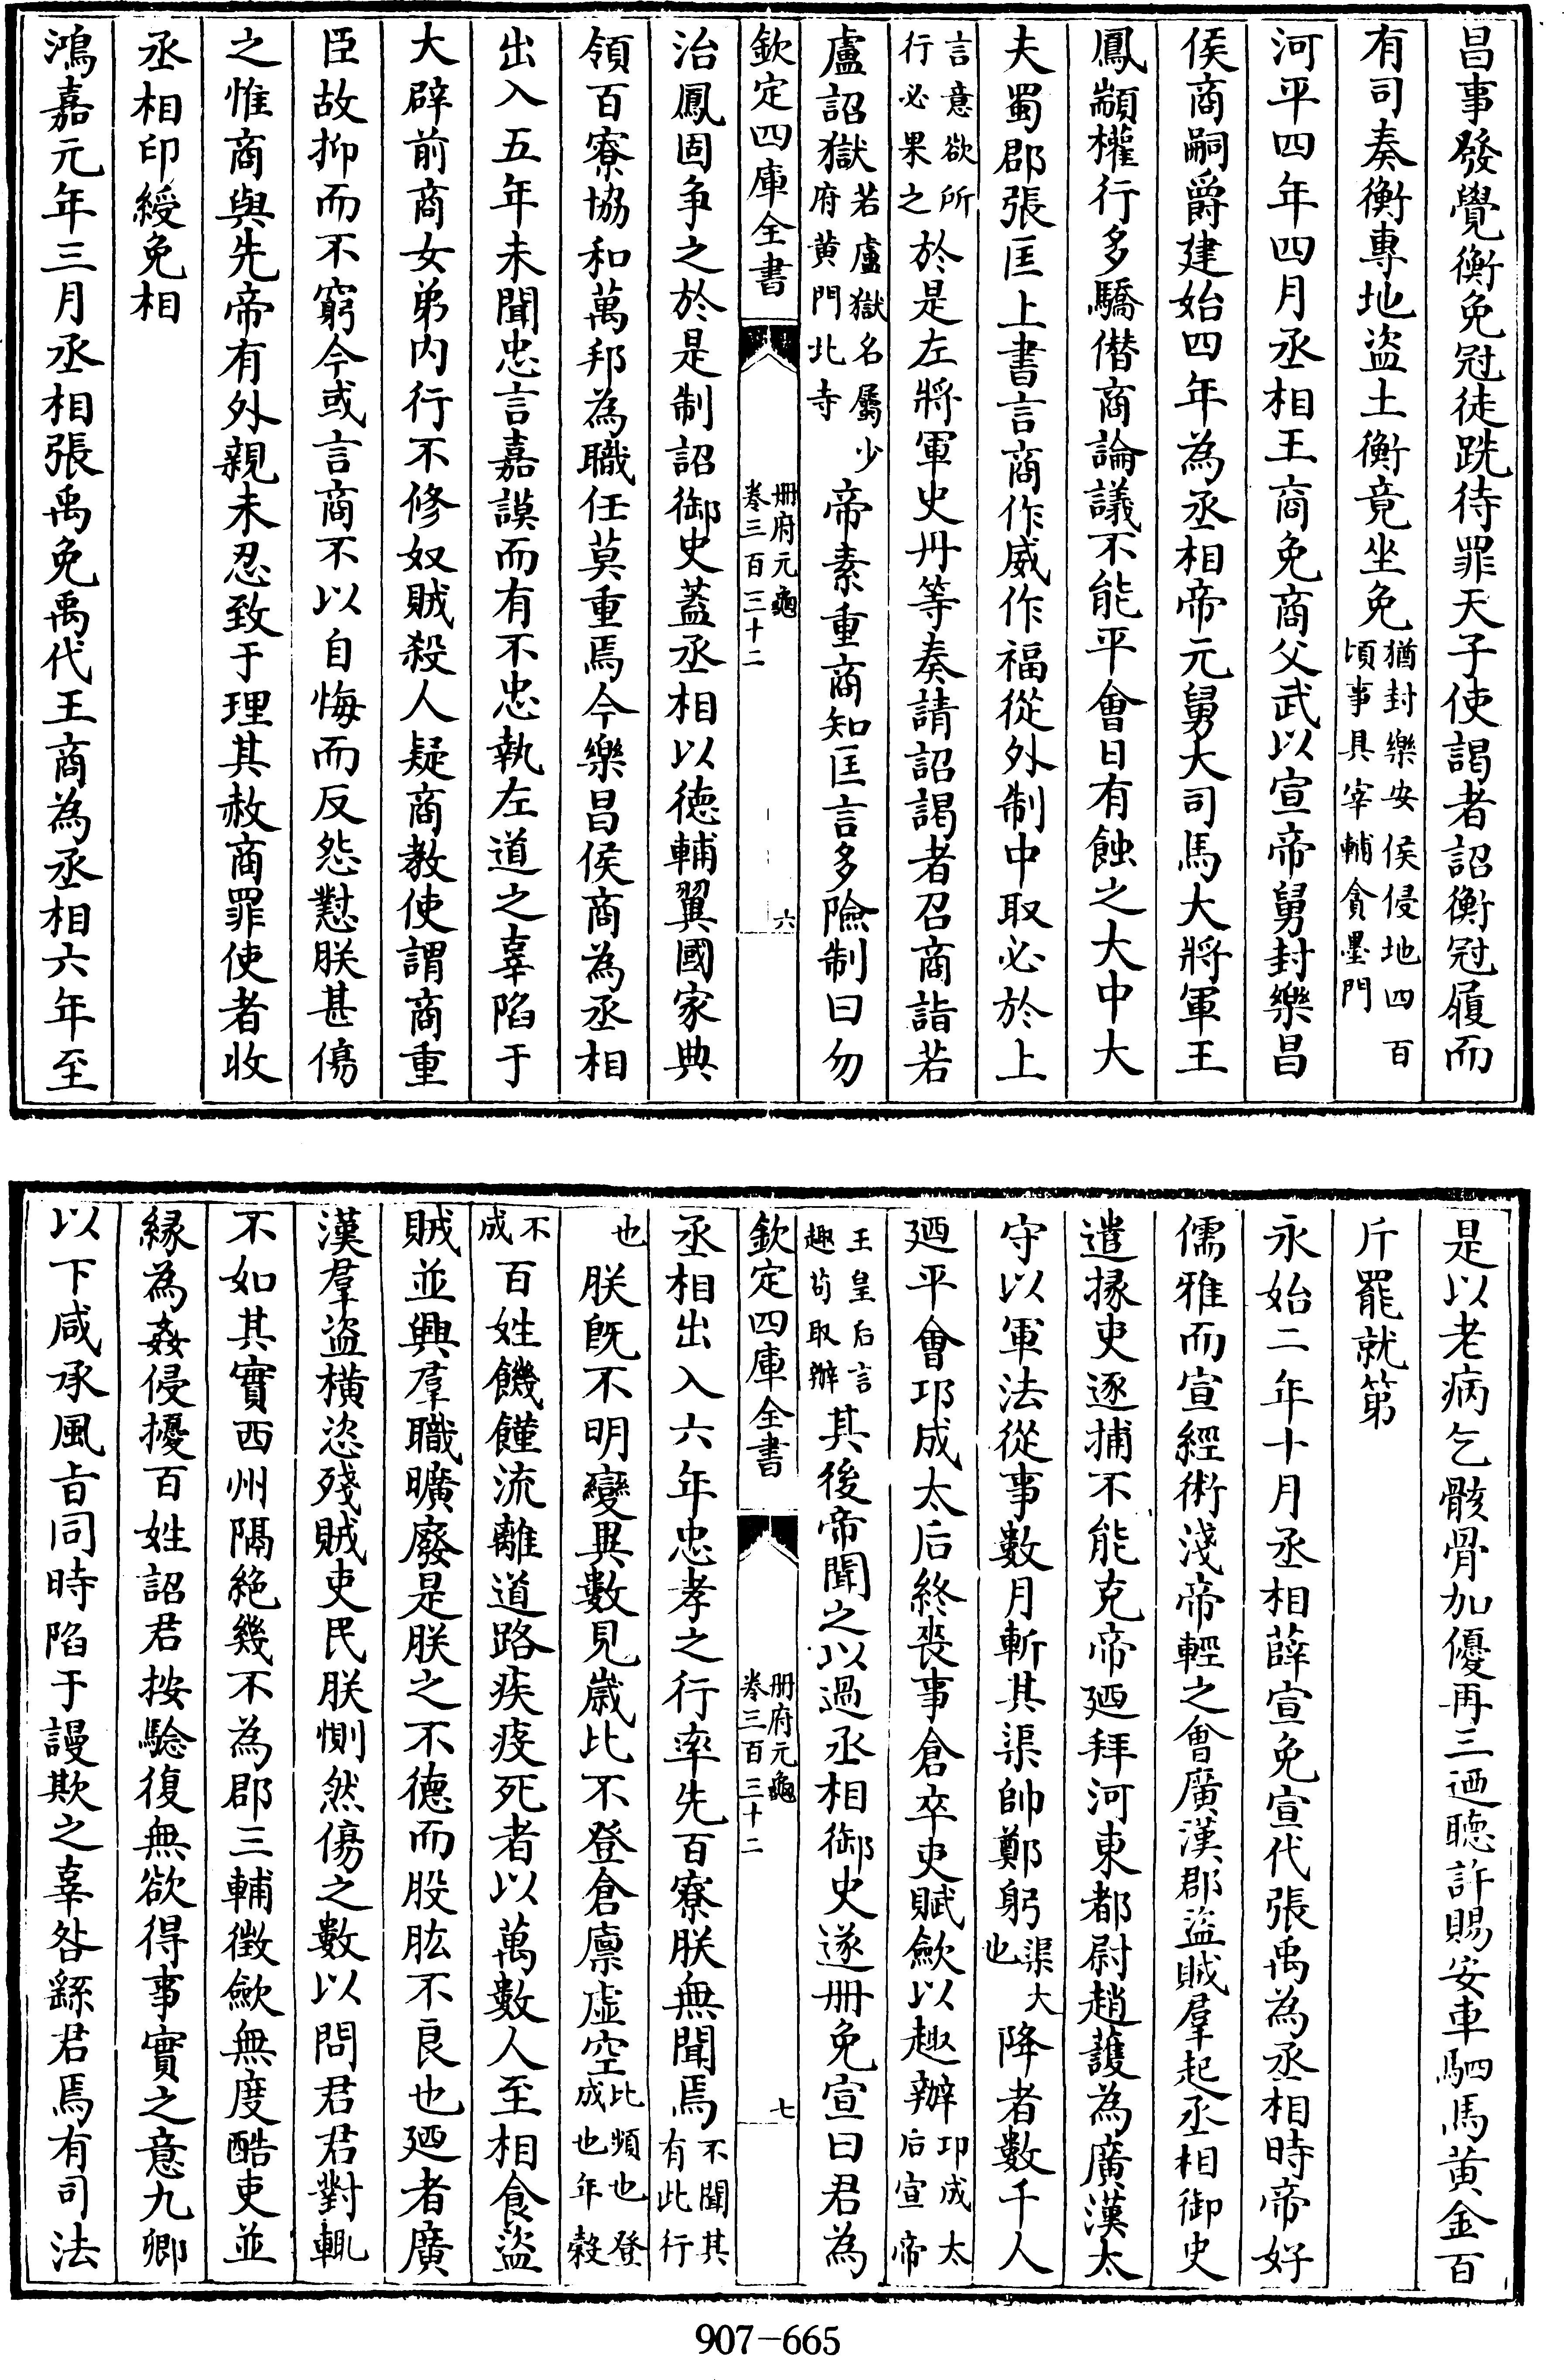 昌事發覺衡免冠徒跣待罪天子使謁者詔衡冠履而
有司奏衡專地盜土衡竟坐免猶封樂安侯侵地四百頃事具宰輔貪墨門
河平四年四月丞相王商免商父武以宣帝舅封樂昌
侯商嗣爵建始四年為丞相帝元舅大司馬大將軍王
鳳顓權行多驕僭商論議不能平會日有蝕之大中大
夫蜀郡張匡上書言商作威作福從外制中取必於上
言意欲所行必果之於是左將軍史丹等奏請詔謁者召商詣若
盧詔獄若盧獄名屬少府黄門北寺帝素重商知匡言多險制曰勿
欽定四庫全書 冊府元龜卷三百三十二 六
治鳳固争之於是制詔御史蓋丞相以德輔翼國家典
領百寮協和萬邦為職任莫重焉今樂昌侯商為丞相
出入五年未聞忠言嘉謨而有不忠執左道之辜陷于
大辟前商女弟内行不修奴賊殺人疑商教使謂商重
臣故抑而不窮今或言商不以自悔而反怨懟朕甚傷
之惟商與先帝有外親未忍致于理其赦商罪使者收
丞相印綬免相
鴻嘉元年三月丞相張禹免禹代王商為丞相六年至
是以老病乞骸骨加優再三迺聽許賜安車駟馬黄金百
斤罷就第
永始二年十月丞相薛宣免宣代張禹為丞相時帝好
儒雅而宣經術淺帝輕之會廣漢郡盜賊羣起丞相御史
遣掾吏逐捕不能克帝廼拜河東都尉趙護為廣漢太
守以軍法從事數月斬其渠帥鄭躬渠大也降者數千人
廼平會邛成太后終喪事倉卒吏賦歛以趣辦邛成太后宣帝
王皇后言趣苟取辦其後帝聞之以過丞相御史遂冊免宣曰君為
欽定四庫全書 冊府元龜卷三百三十二 七
丞相出入六年忠孝之行率先百寮朕無聞焉不聞其有此行
也朕既不明變異數見歲比不登倉廪虚空比頻也登成也年穀
不成百姓饑饉流離道路疾疫死者以萬數人至相食盜
賊並興羣職曠廢是朕之不德而股肱不良也廼者廣
漢羣盜橫恣殘賊吏民朕惻然傷之數以問君君對輒
不如其實西州隔絶幾不為郡三輔徵歛無度酷吏並
緣為姦侵擾百姓詔君按驗復無欲得事實之意九卿
以下咸承風㫖同時陷于謾欺之辜咎繇君焉有司法
907-665